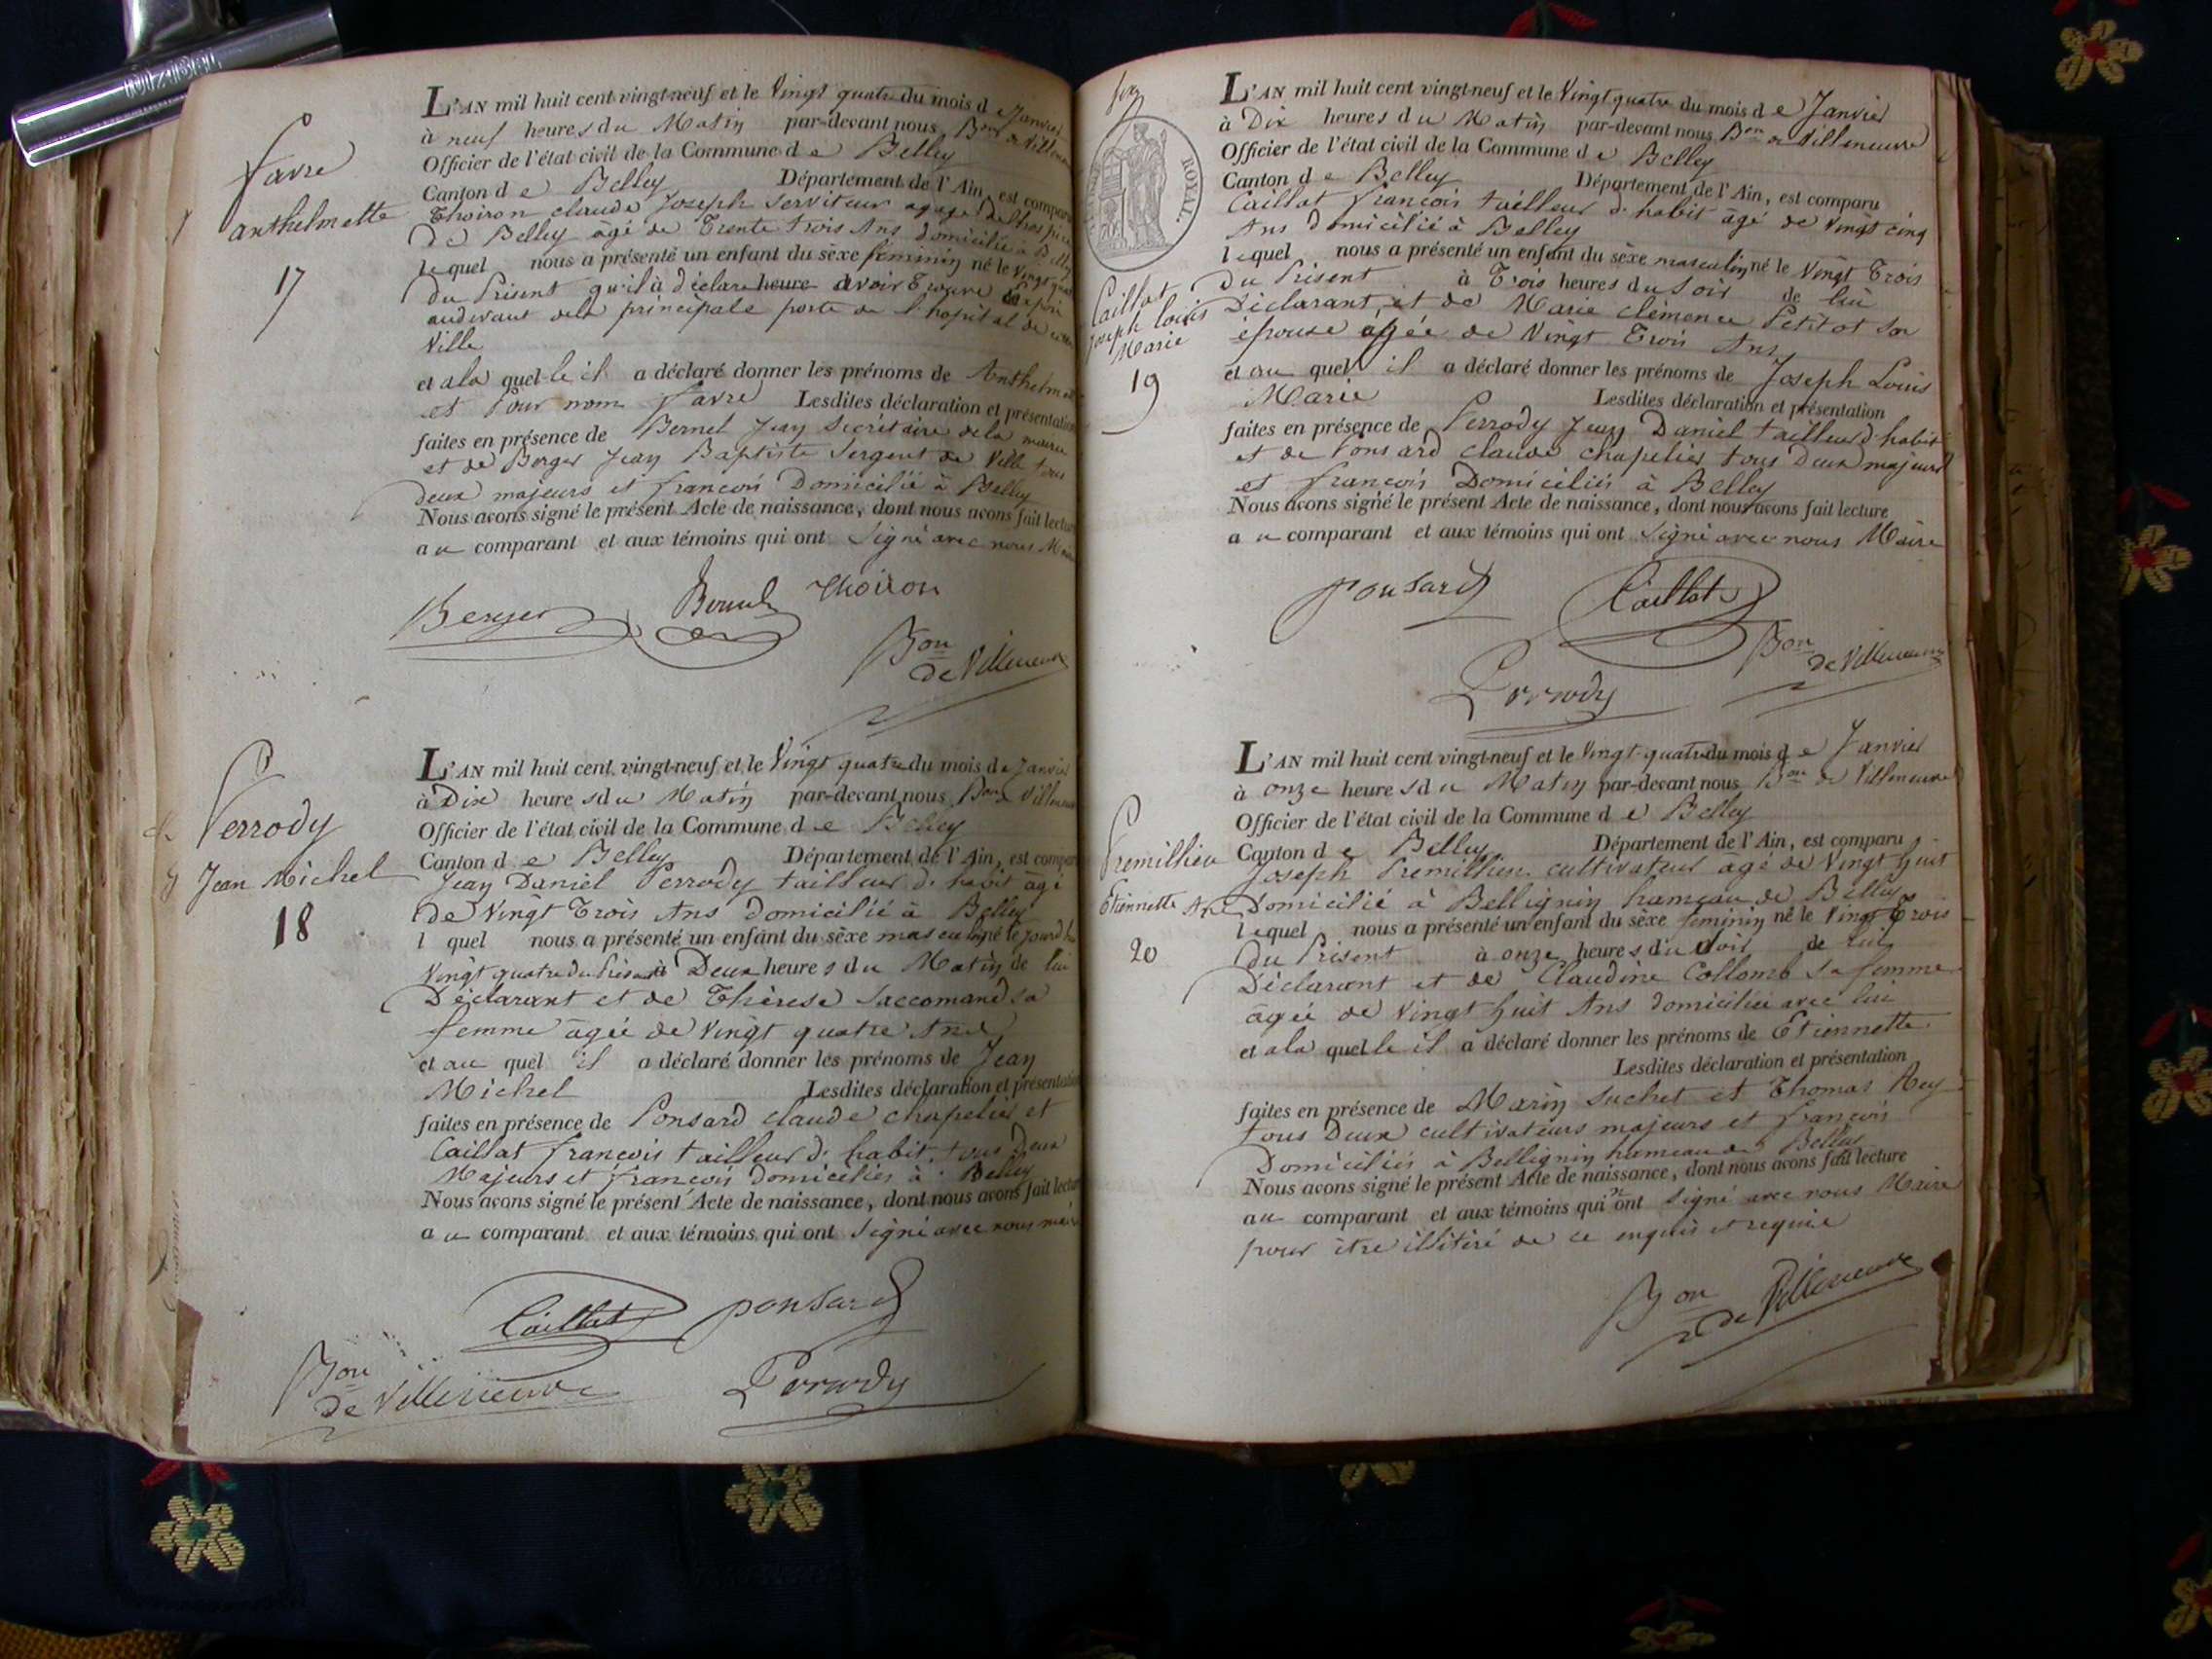 Favre
anthelmette
17
L'AN mil huit cent vingt-neuf et le Vingt quatre du mois de Janvier
à neuf heures du Matin par-devant nous Bon de Villeneuve
Officier de l'état civil de la Commune de Belley
Canton de Belley Département de l'Ain, est comparu
Thoiron claude Joseph Serviteur
de Belley agé de Trente trois Ans domicilié à Belley
lequel nous a présenté un enfant du sèxe féminin né le Vingt quatre
du Présent qu'il à déclaré heure avoir Trouvé
audevant dela principale porte de l'hopital de cette
Ville
et ala quelle il a déclaré donner les prénoms de Anthelmette
et Pour nom favre Lesdites déclaration et présentation
faites en présence de Bernel Jean Secrétaire dela mairie
et de Berger Jean Baptiste Sergent de Ville tous
deux majeurs et françois Domicilié à Belley
Nous avons signé le présent Acte de naissance, dont nous avons fait lecture
au comparant et aux témoins qui ont Signé avec nous Maire
Berger Thoiron
Bon
de Villeneuve
Perrody
Jean Michel
18
L'AN mil huit cent vingt-neuf et le Vingt quatre du mois de Janvier
à Dix heures du Matin par-devant nous Bon de Villeneuve
Officier de l'état civil de la Commune de Belley
Canton de Belley Département de l'Ain, est comparu
Jean Daniel Perrody tailleur d. habit âgé
de Vingt Trois Ans domicilié à Belley
l quel nous a présenté un enfant du sèxe masculin né le jourd'hui
Vingt quatre du Présent à Deux heures du Matin de lui
Déclarant et de Thérese Saccomand sa
femme âgée de Vingt quatre Ans
et au quel il a déclaré donner les prénoms de Jean
Michel Lesdites déclaration et présentation
faites en présence de Ponsard claude chapelier et
Caillat françois tailleur d. habit tous Deux
Majeurs et françois domiciliés à Belley
Nous avons signé le présent Acte de naissance, dont nous avons fait lecture
au comparant et aux témoins qui ont Signé avec nous maire
Caillat ponsard
Bon
de Villeneuve Perrody
ROYAL.
Caillat
Joseph Louis
Marie
19
L'AN mil huit cent vingt-neuf et le Vingt quatre du mois de Janvier
à Dix heures du Matin par-devant nous Bon de Villeneuve
Officier de l'état civil de la Commune de Belley
Canton de Belley Département de l'Ain, est comparu
Caillat françois tailleur d. habit âgé de Vingt cinq
Ans domicilié à Belley
lequel nous a présenté un enfant du sèxe masculin né le Vingt Trois
du Présent à Trois heures du Soir de lui
Déclarant et de Marie clémence Petitot son
épouse âgée de Vingt Trois Ans
et au quel il a déclaré donner les prénoms de Joseph Louis
Marie Lesdites déclaration et présentation
faites en présence de Perrody Jean Daniel tailleur d. habit
et de Ponsard claude chapelier tous Deux majeurs
et françois Domiciliés à Belley
Nous avons signé le présent Acte de naissance, dont nous avons fait lecture
au comparant et aux témoins qui ont Signé avec nous Maire
ponsard Caillat
Bon
de Villeneuve
Perrody
Premillieu
Etiennette
20
L'AN mil huit cent vingt-neuf et le Vingt-quatre du mois de Janvier
à onze heures du Matin par-devant nous Bon de Villeneuve
Officier de l'état civil de la Commune de Belley
Canton de Belley Département de l'Ain, est comparu
Joseph Premillieu cultivateur agé de Vingt huit
Ans Domicilié à Bellignin hameau de Belley
lequel nous a présenté un enfant du sèxe feminin né le Vingt Trois
du Présent à onze heures du Soir de lui
Déclarant et de Claudine Collomb Sa femme
âgée de Vingt huit Ans domiciliée avec lui
et ala quelle il a déclaré donner les prénoms de Etiennette
Lesdites déclaration et présentation
faites en présence de Marin Suchet et Thomas Rey
tous Deux cultivateurs majeurs et françois
Domiciliés à Bellignin hameau de Belley
Nous avons signé le présent Acte de naissance, dont nous avons fait lecture
au comparant et aux témoins qui n'ont Signé avec nous Maire
pour être illitéré de ce enquis et requis
Bon
de Villeneuve